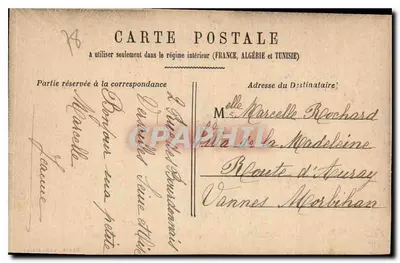 CARTE POSTALE
A utiliser seulement dans le régime intérieur (FRANCE, ALGÉRIE et TUNISIE)
Partie réservée à la correspondance
Adresse du Destinataire
2 Bourdonnais
Versailles Seine et
Bonjour ma petite
Marcelle
Jeanne
Melle Marcelle Rochard
de la Madeleine
Route d'Auray
Vannes Morbihan